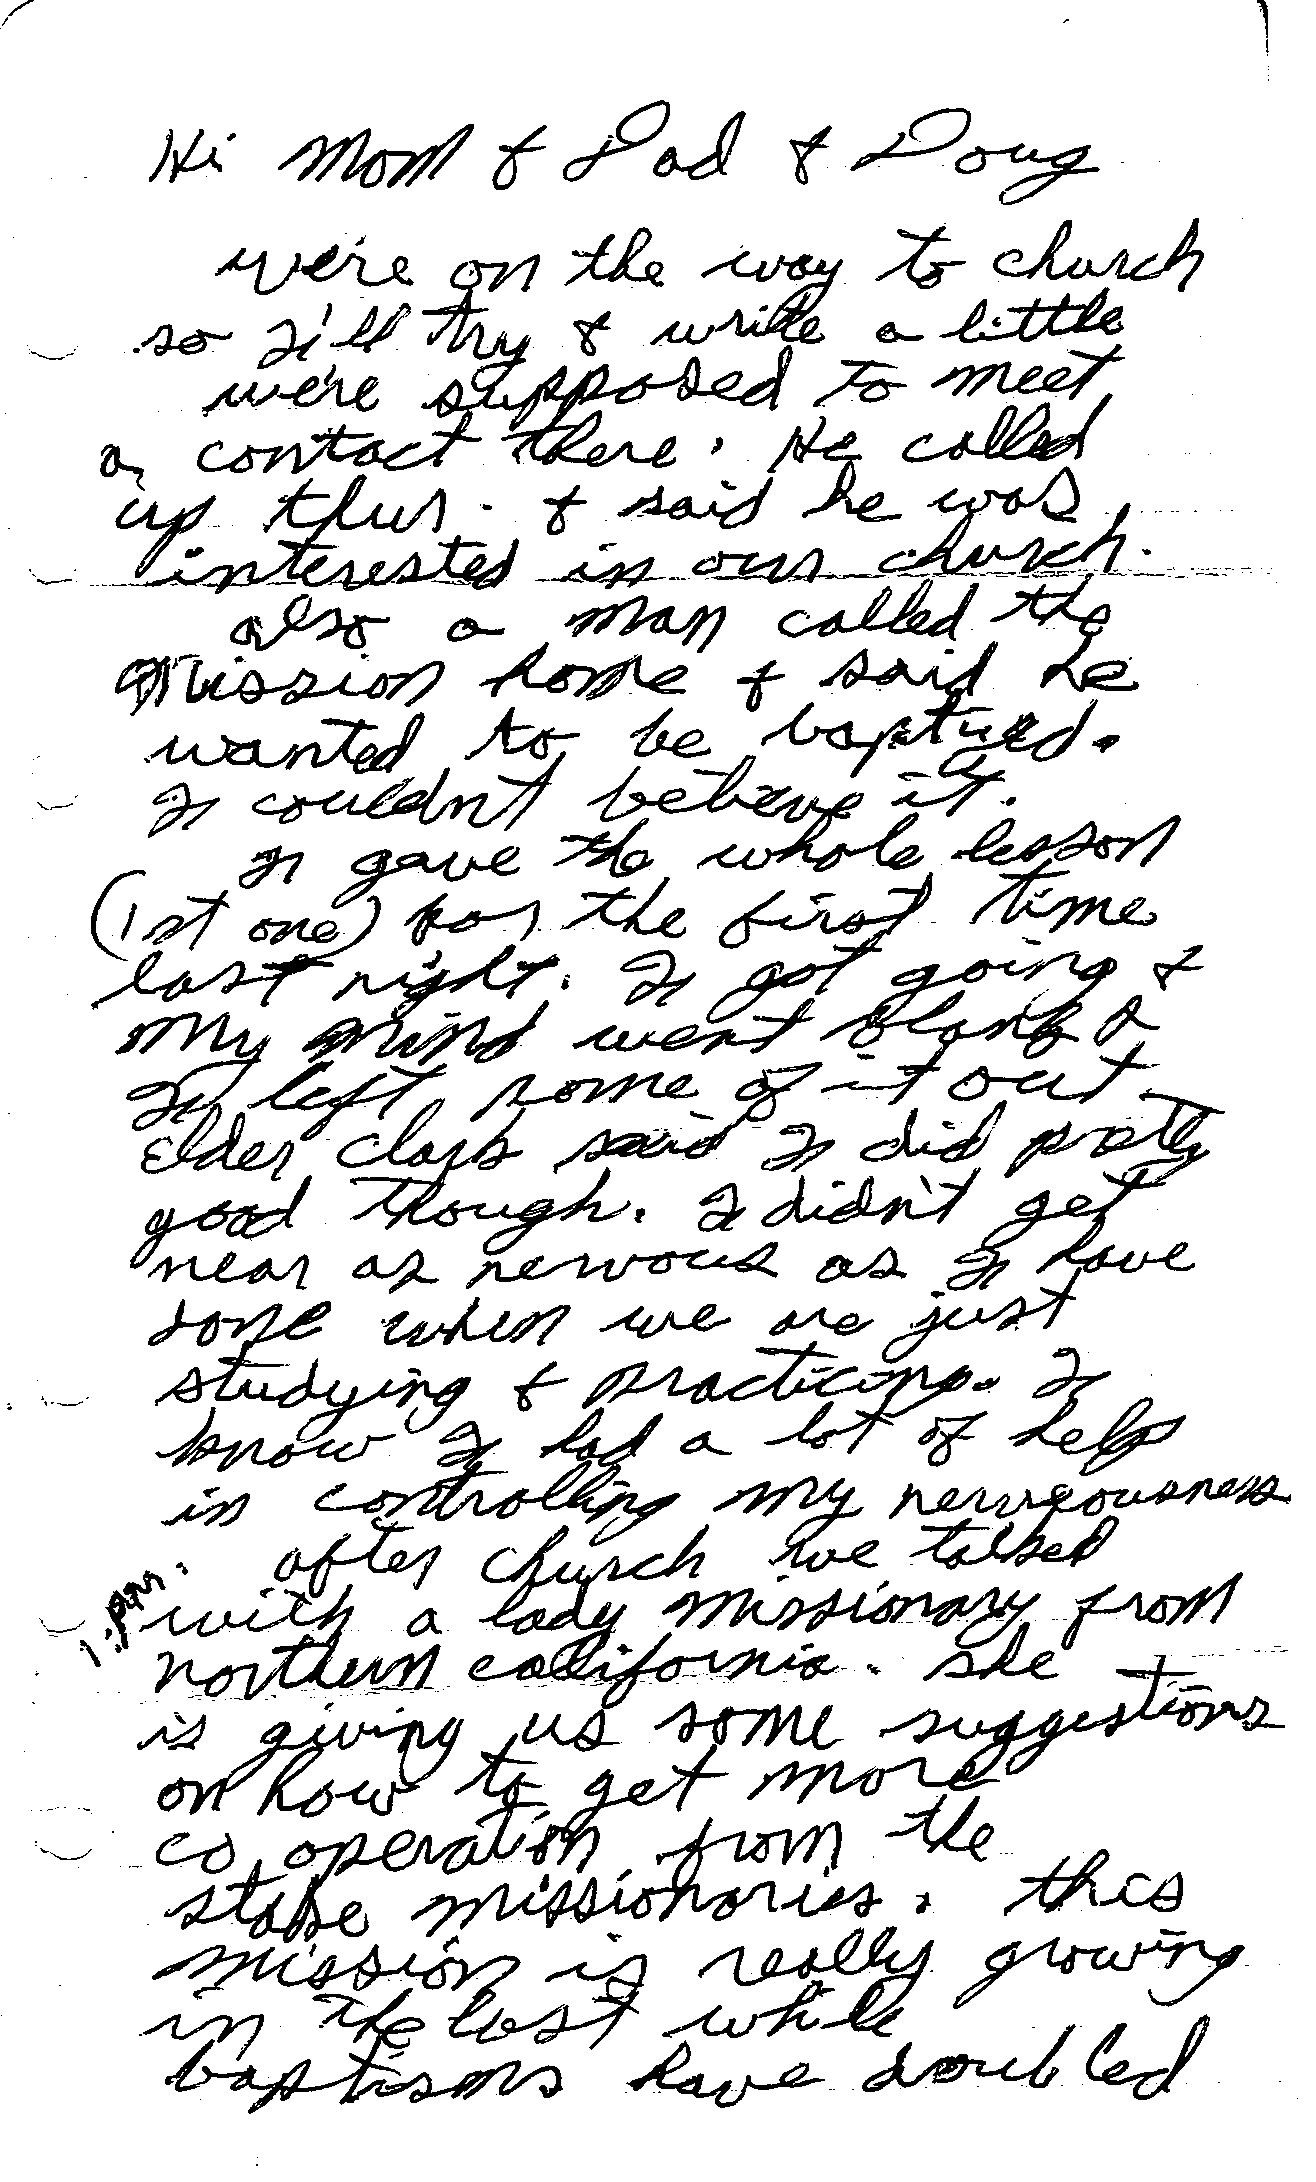 Hi Mom & Dad & Doug
we're on the way to church
so I'll try & write a little
we're supposed to meet
a contact there. He called
up thur. & said he was
interested in our church.
also a man called the
mission home & said he
wanted to be baptized.
I couldn't believe it.
I gave the whole lesson
(1st one) for the first time
last night. I got going &
my mind went blank &
I left some of it out
Elder Clark said I did pretty
good though. I didn't get
near as nervous as I have
done when we are just
studying & practicing. I
know I had a lot of help
in controlling my nerveousness
after church we talked
1:pm. with a lady missionary from
northern california. she
is giving us some suggestions
on how to get more
co operation from the
stake missionaries. this
mission is really growing
in the last while
baptisms have doubled